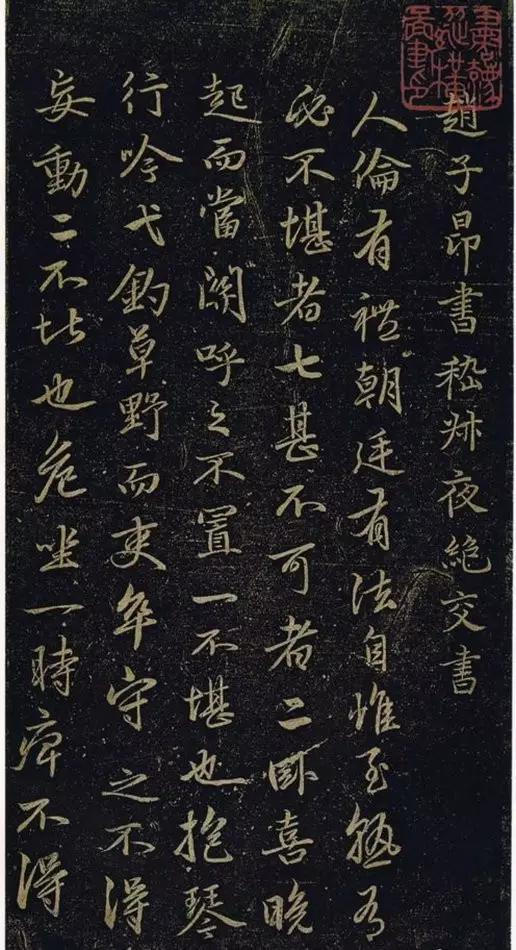 趙子昂書嵇叔夜絶交書
人倫有禮朝廷有法自惟至熟有
必不堪者七甚不可者二卧喜晚
起而當關呼之不置一不堪也抱琴
行吟弋釣草野而吏卒守之不得
妄動二不堪也危坐一時痺不得